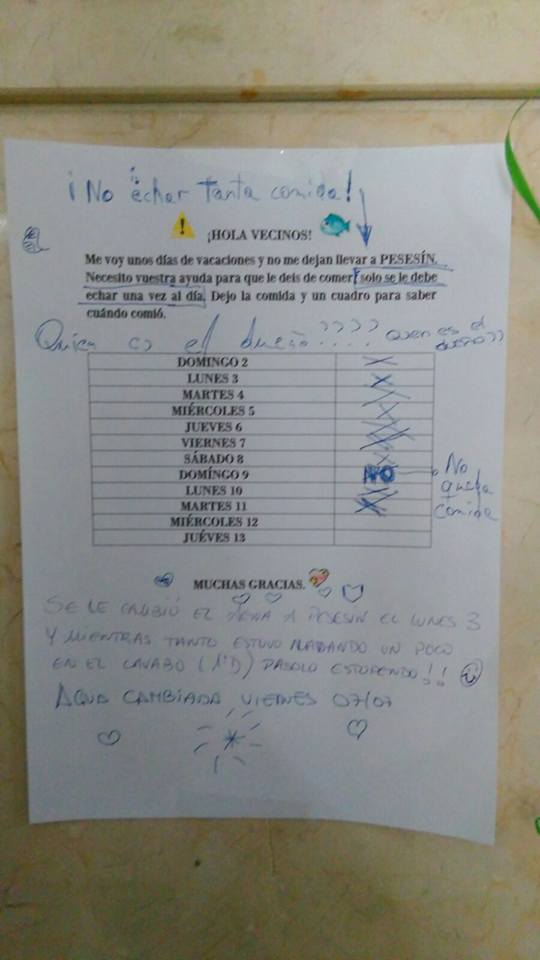 ¡No echar tanta comida!
¡HOLA VECINOS!
Me voy unos días de vacaciones y no me dejan llevar a PESESÍN.
Necesito vuestra ayuda para que le deis de comer, solo se le debe
echar una vez al día. Dejo la comida y un cuadro para saber
cuándo comió.
Quien es el dueño???? quien es el
dueño??
DOMINGO 2
LUNES 3
MARTES 4
MIÉRCOLES 5
JUEVES 6
VIERNES 7
SÁBADO 8
DOMÍNGO 9 NO No
queda
comida
LUNES 10
MARTES 11
MIÉRCOLES 12
JUÉVES 13
MUCHAS GRACIAS.
SE LE CAMBIÓ EL AGUA A PESESIN EL LUNES 3
Y MIENTRAS TANTO ESTUVO NADANDO UN POCO
EN EL LAVABO (1ºD) PASOLO ESTUPENDO!!
AGUA CAMBIADA VIERNES 07/07